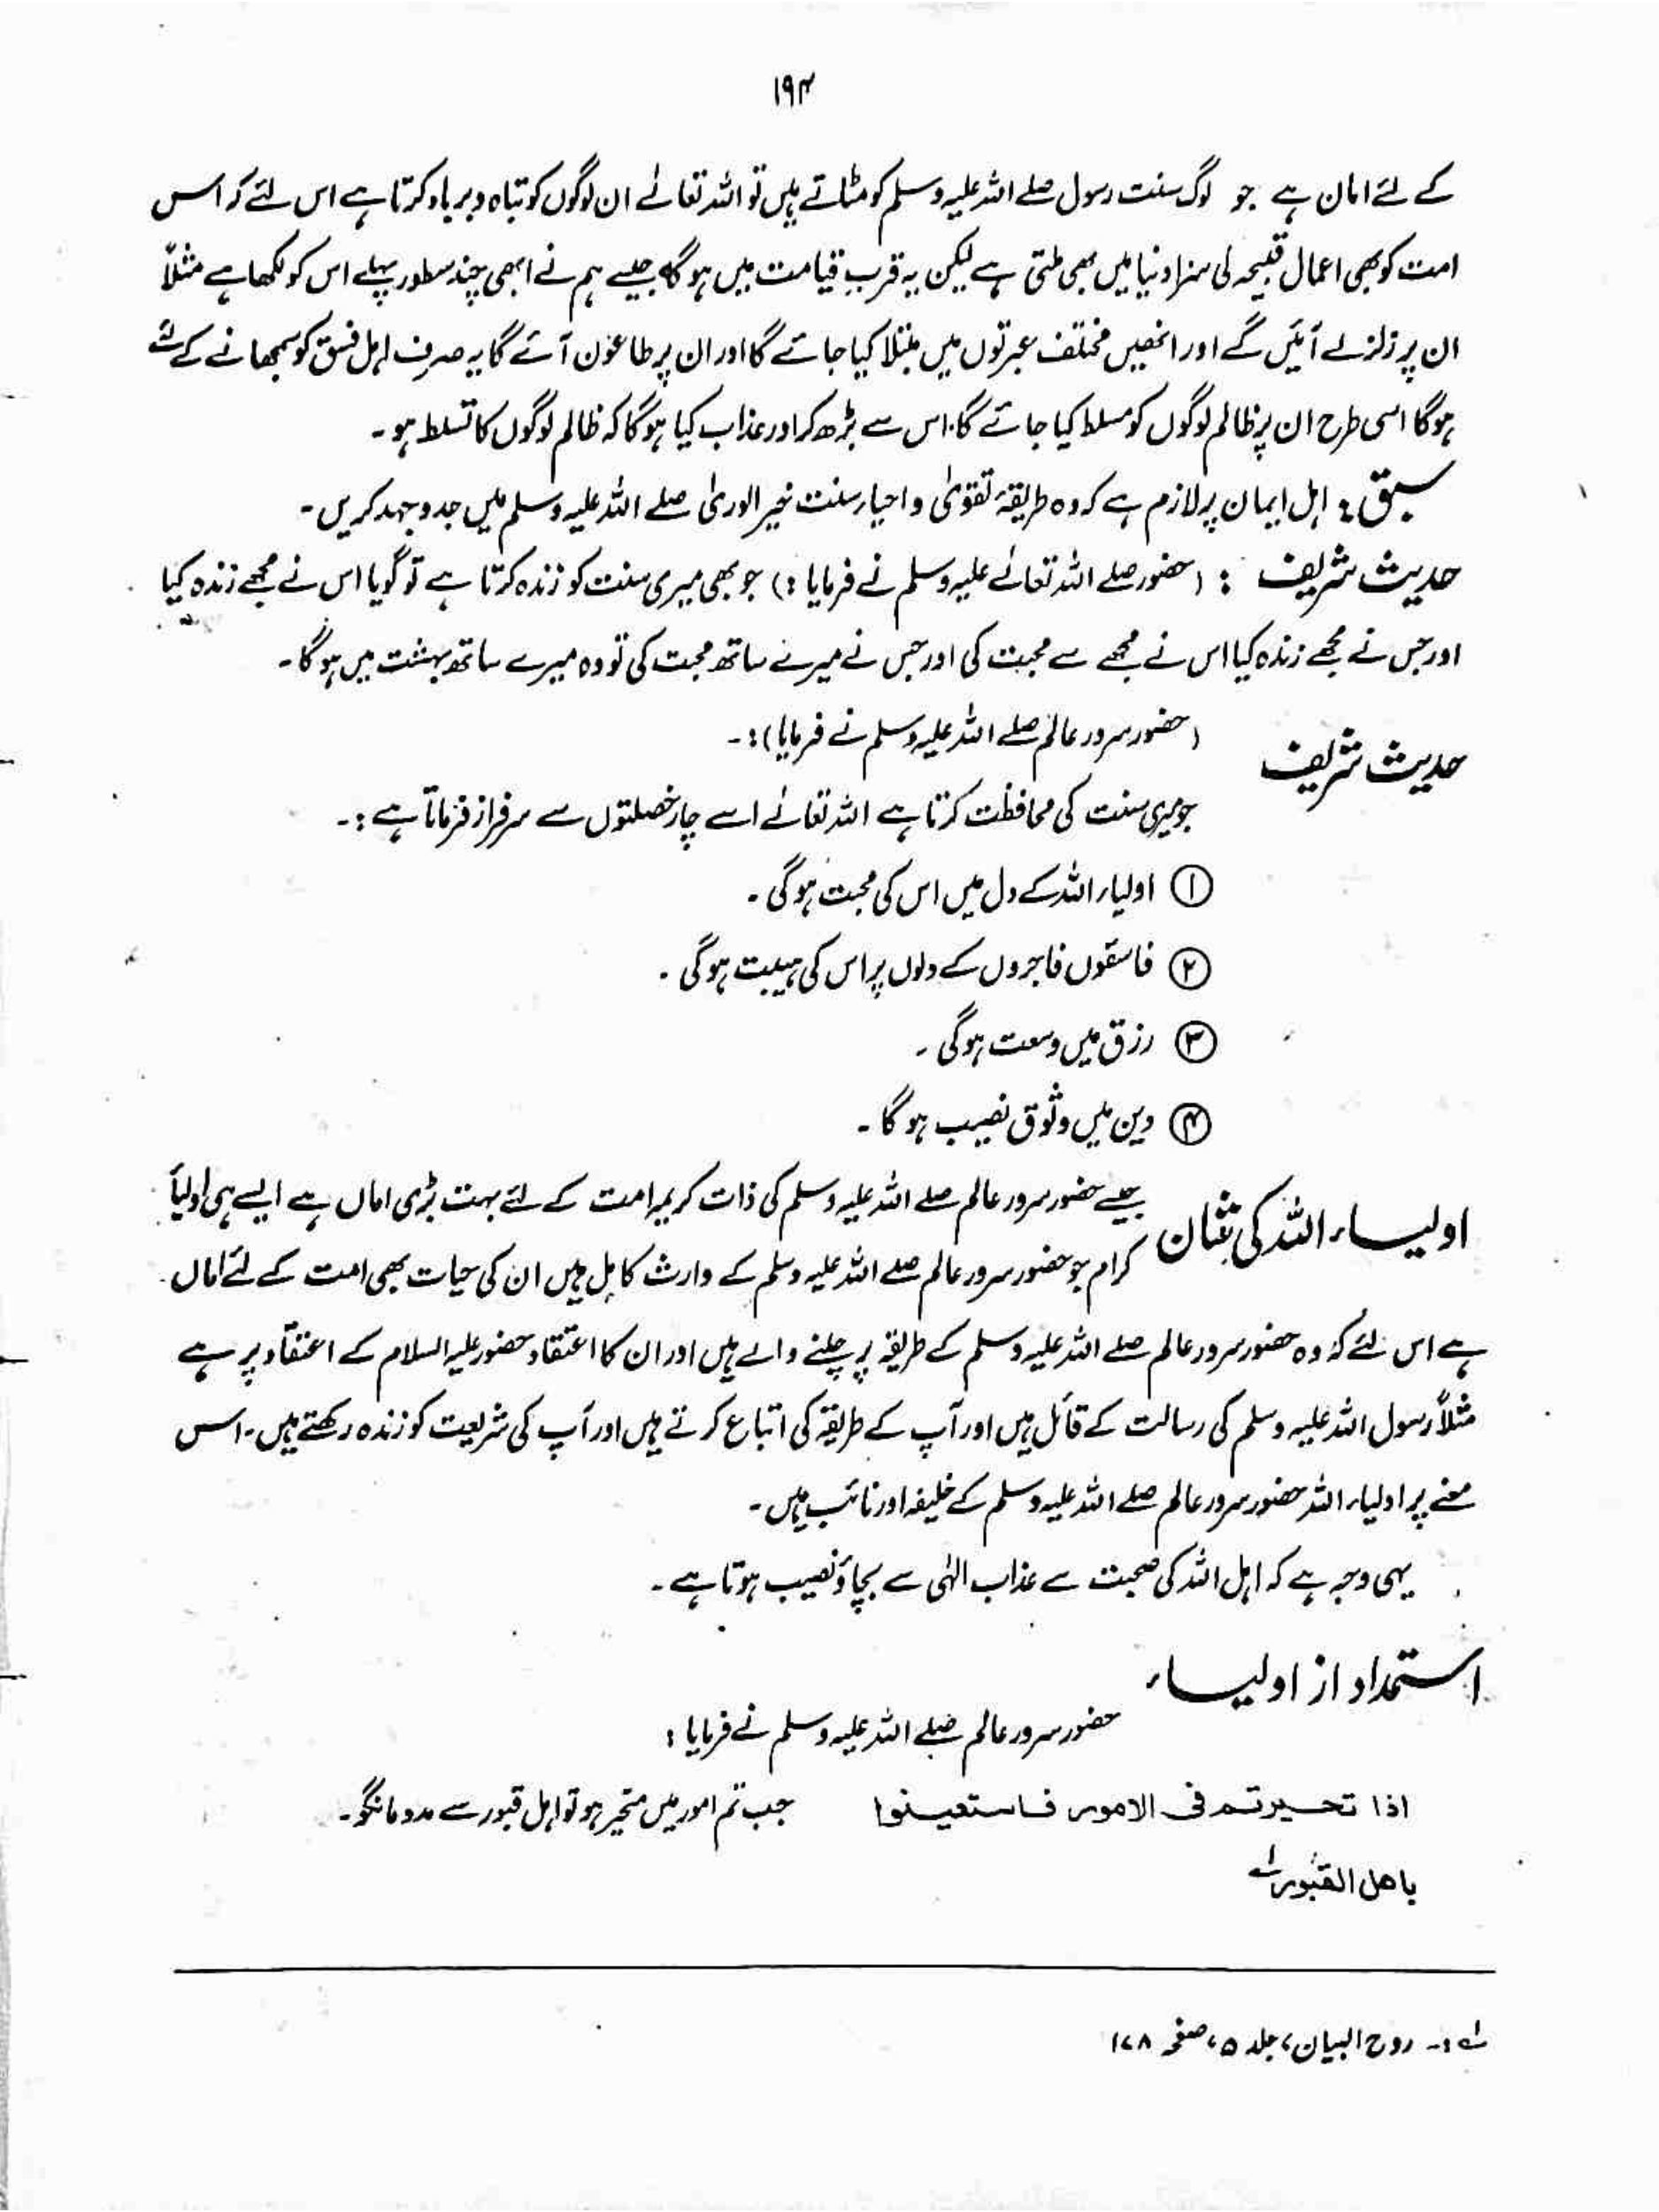 ۱۹۴
کے لئے امان ہے جو لوگ سنت رسول صلے اللہ علیہ وسلم کو مٹاتے ہیں تو اللہ تعالےٰ ان لوگوں کو تباہ و برباد کرتا ہے اس لئے کہ اس
امت کو بھی اعمال قبیحہ کی سزا دنیا میں بھی ملتی ہے لیکن یہ قرب قیامت میں ہوگا جیسے ہم نے ابھی چند سطور پہلے اس کو لکھا ہے مثلاً
ان پر زلزلے آئیں گے اور انھیں مختلف عبرتوں میں مبتلا کیا جائے گا اور ان پر طاعون آئے گا یہ صرف اہل فسق کو سمجھانے کے لئے
ہوگا اسی طرح ان پر ظالم لوگوں کو مسلط کیا جائے گا۔ اس سے بڑھ کر اور عذاب کیا ہوگا کہ ظالم لوگوں کا تسلط ہو۔
سبق : اہل ایمان پر لازم ہے کہ وہ طریقۂ تقویٰ و احیاء سنت خیر الوریٰ صلے اللہ علیہ وسلم میں جدوجہد کریں۔
حدیث شریف : (حضور صلے اللہ تعالےٰ علیہ وسلم نے فرمایا :) جو بھی میری سنت کو زندہ کرتا ہے تو گویا اس نے مجھے زندہ کیا
اور جس نے مجھے زندہ کیا اس نے مجھے سے محبت کی اور جس نے میرے ساتھ محبت کی تو وہ میرے ساتھ بہشت میں ہوگا۔
حدیث شریف (حضور سرور عالم صلے اللہ علیہ وسلم نے فرمایا) :۔
جو میری سنت کی محافظت کرتا ہے اللہ تعالےٰ اسے چار خصلتوں سے سرفراز فرماتا ہے :۔
① اولیاء اللہ کے دل میں اس کی محبت ہوگی۔
② فاسقوں فاجروں کے دلوں پر اس کی ہیبت ہوگی۔
③ رزق میں وسعت ہوگی۔
④ دین میں وثوق نصیب ہوگا۔
اولیاء اللہ کی شان جیسے حضور سرور عالم صلے اللہ علیہ وسلم کی ذات کریمہ امت کے لئے بہت بڑی اماں ہے ایسے ہی اولیأ
کرام جو حضور سرور عالم صلے اللہ علیہ وسلم کے وارث کامل ہیں ان کی حیات بھی امت کے لئے اماں
ہے اس لئے کہ وہ حضور سرور عالم صلے اللہ علیہ وسلم کے طریقہ پر چلنے والے ہیں اور ان کا اعتقاد حضور علیہ السلام کے اعتقاد پر ہے
مثلاً رسول اللہ علیہ وسلم کی رسالت کے قائل ہیں اور آپ کے طریقہ کی اتباع کرتے ہیں اور آپ کی شریعت کو زندہ رکھتے ہیں۔ اس
معنے پر اولیاء اللہ حضور سرور عالم صلے اللہ علیہ وسلم کے خلیفہ اور نائب ہیں۔
یہی وجہ ہے کہ اہل اللہ کی صحبت سے عذاب الٰہی سے بچاؤ نصیب ہوتا ہے۔
استمداد از اولیاء
حضور سرور عالم صلے اللہ علیہ وسلم نے فرمایا :
اذا تحیرتم فی الامور فاستعینوا جب تم امور میں متحیر ہو تو اہل قبور سے مدد مانگو۔
باھل القبور لہ
لہ :۔ روح البیان، جلد ۵، صفحہ ۱۷۸